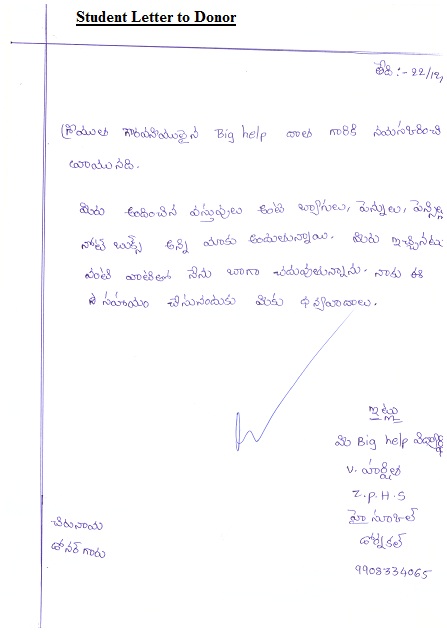 Student Letter to Donor
తేది :- 22/12/
శ్రీయుత గౌరవనీయులైన Big help దాత గారికి నమస్కరించి
వ్రాయునది.
మీరు అందించిన వస్తువులు అంటే బ్యాగులు, పెన్నులు, పెన్సిల్లు
నోట్ బుక్స్ అన్ని మాకు అందుతున్నాయి. మీరు ఇచ్చినటు
వంటి వాటితో నేను బాగా చదువుతున్నాను. నాకు ఈ
సహాయం చేసినందుకు మీకు ధన్యవాదాలు.
ఇట్లు
మీ Big help విద్యార్థి
V. హర్షిత
Z.P.H.S
హై స్కూల్
డోర్నకల్
9908334065
చిరునామ
డోనర్ గారు